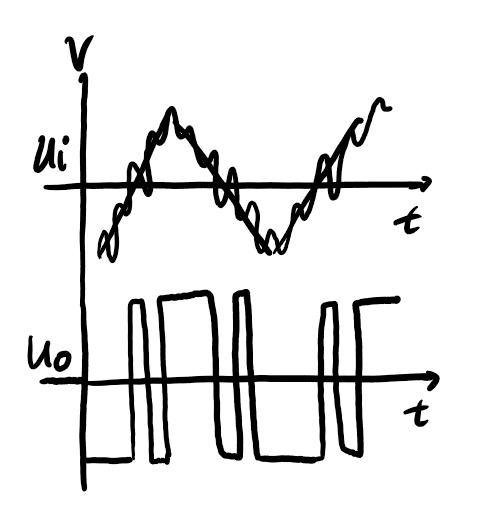 V
Ui
t
Uo
t